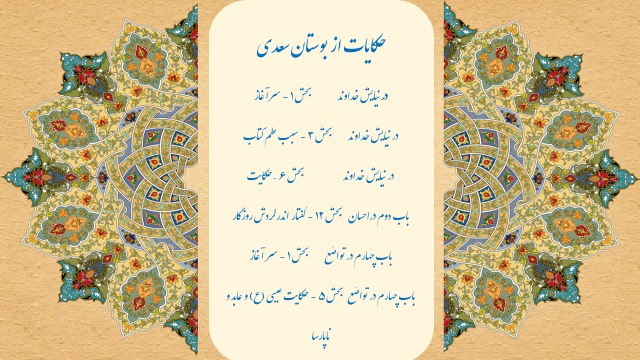 حکایات از بوستان سعدی
در نیایش خداوند بخش ۱ - سرآغاز
در نیایش خداوند بخش ۳ - سبب نظم کتاب
در نیایش خداوند بخش ۶ - حکایت
باب دوم در احسان بخش ۱۲ - گفتار اندر گردش روزگار
باب چهارم در تواضع بخش ۱ - سرآغاز
باب چهارم در تواضع بخش ۵ - حکایت عیسی (ع) و عابد و
ناپارسا